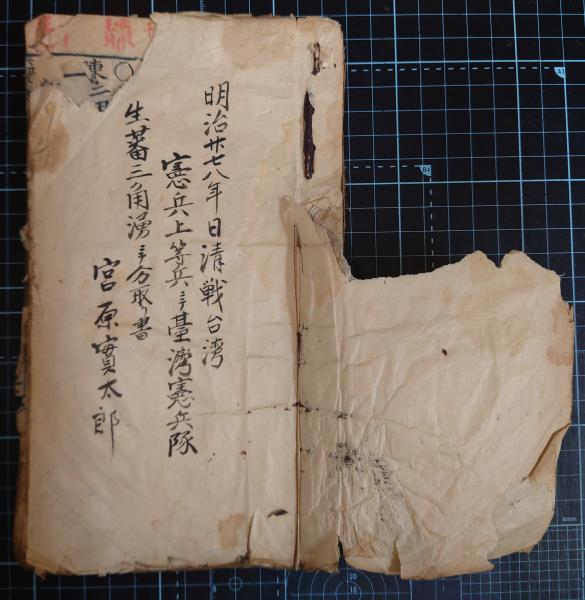 明治廿七八年日清戦台湾
憲兵上等兵ニテ臺灣憲兵隊
生蕃三角湧ニテ分取リ書
宮原實太郎
○東二
一